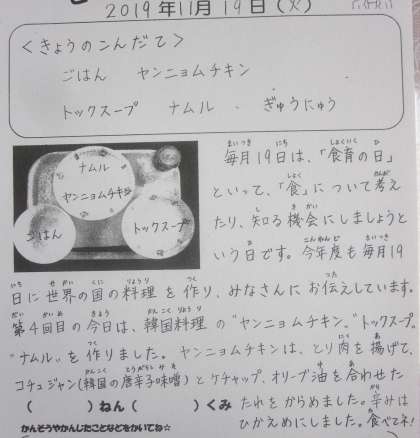 2019年11月19日(火)
<きょうのこんだて>
ごはん ヤンニョムチキン
トックスープ ナムル ・ ぎゅうにゅう
ナムル
ヤンニョムチキン
ごはん
トックスープ
毎月19日は、「食育の日」
といって、「食」について考え
たり、知る機会にしましょうと
いう日です。今年度も毎月19
日に世界の国の料理を作り、みなさんにお伝えしています。
第4回目の今日は、韓国料理の"ヤンニョムチキン、"トックスープ、
"ナムル"を作りました。ヤンニョムチキンは、とり肉を揚げて、
コチュジャン(韓国の唐辛子味噌)とケチャップ、オリーブ油を合わせた
( )ねん( )くみ たれをからめました。辛みは
かんそうやかんじたことなどをかいてね☆ ひかえめにしました。食べてネ♪